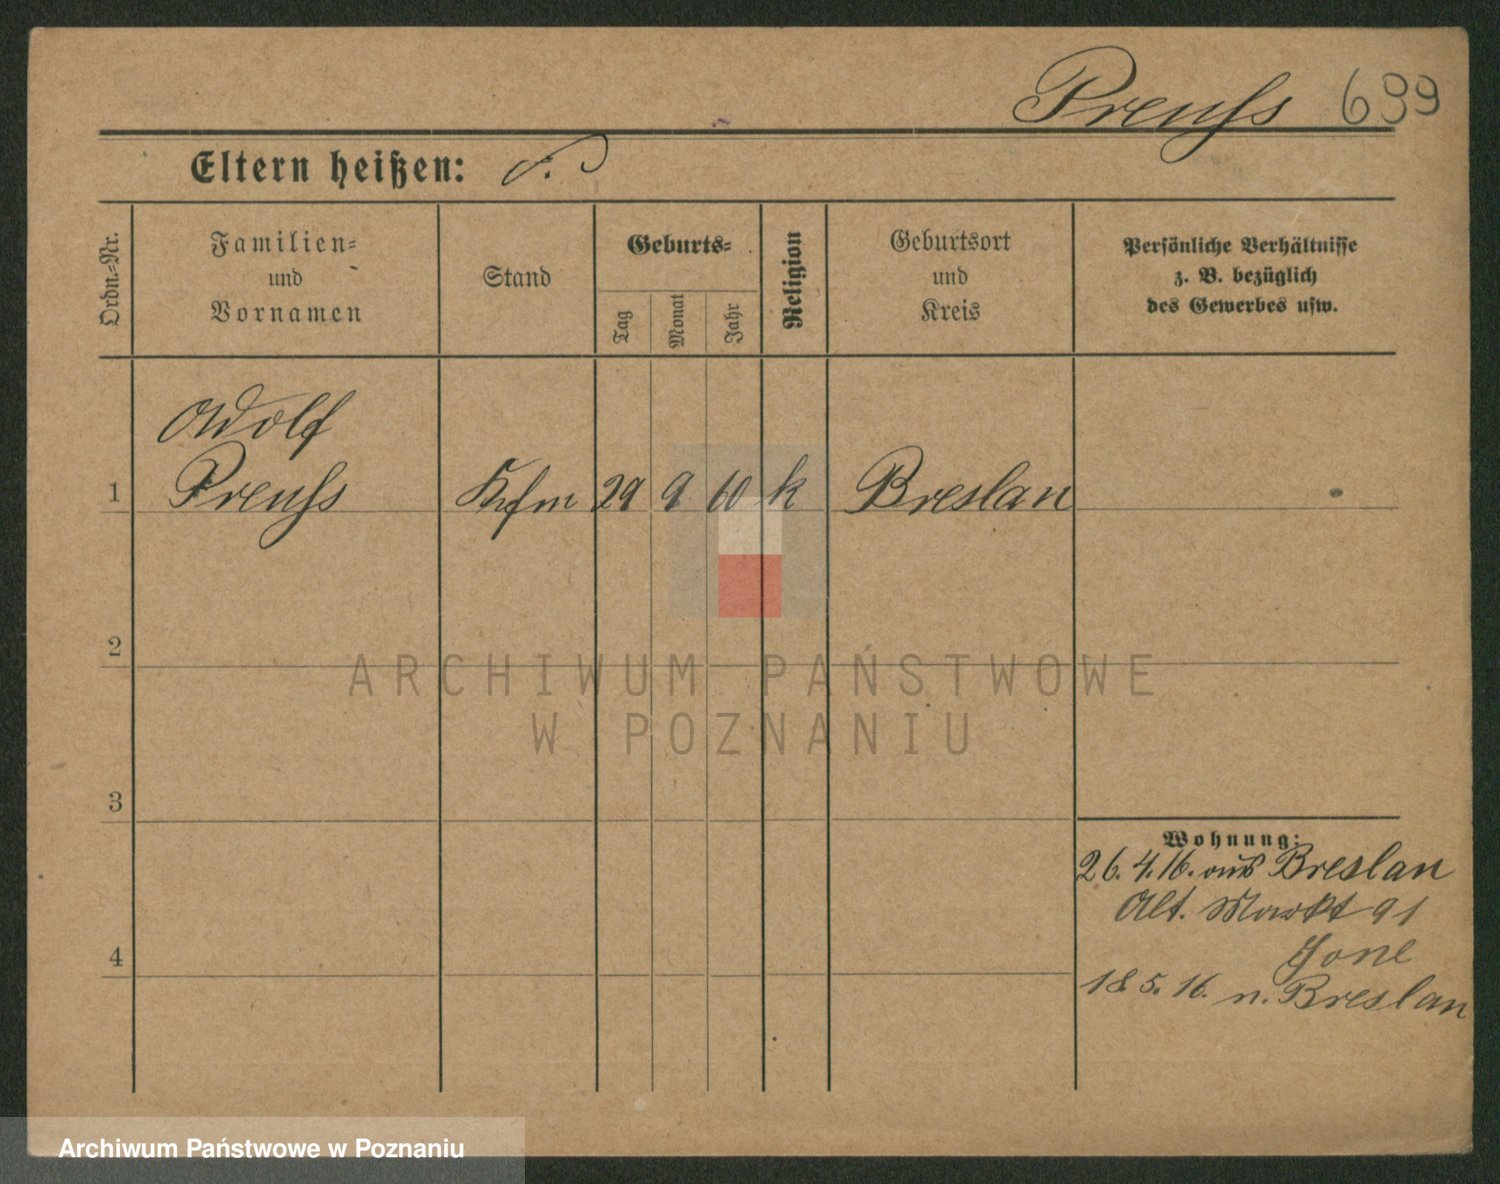 Preuſs 699
Eltern heißen:
Ordn.-Nr.
Familien-
und
Vornamen
Stand
Geburts-
Tag
Monat
Jahr
Religion
Geburtsort
und
Kreis
Persönliche Verhältnisse
z. B. bezüglich
des Gewerbes usw.
Adolf
1 Preuſs Kfm 29 9 60 k Breslau
2
ARCHIWUM PAŃSTWOWE
W POZNANIU
3
Wohnung:
26.4.16. aus Breslau
Alt. Markt 91
4
18.5.16. n. Breslau
Archiwum Państwowe w Poznaniu